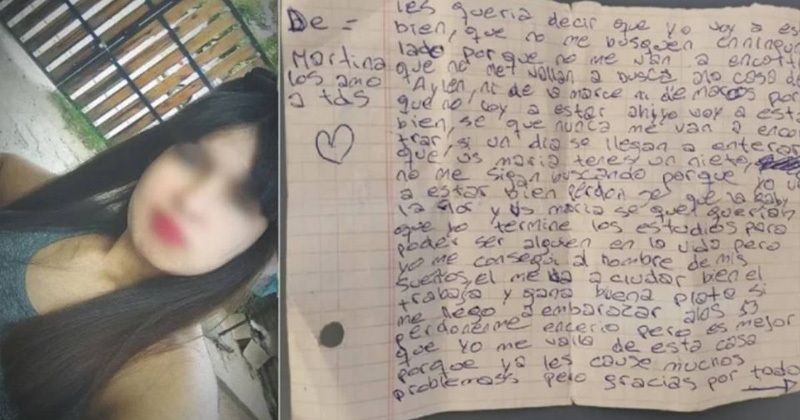 De =
Martina
los amo
a tds
les queria decir que yo voy a est
bien, que no me busquen enningun
lado por que no me van a encont
que no me vallan a busca ala casa de
Aylen, ni de la marce ni de marcos por
que no voy a estar ahi yo voy a esta
bien, se que nunca me van a encon
trar, si un dia se llegan a enterar
que vs maria tenes un nieto,
no me sigan buscando porque yo v
a estar bien perdon se que la baby
la flor y vs maria se que querian
que yo termine los estudios para
poder ser alguien en la vida pero
yo me consegui al hombre de mis
sueños, el me va a ciudar bien el
trabaja y gana buena plata si
me llego a embarazar alos
perdonenme encerio pero es mejor
que yo me valla de esta casa
porque ya les cause muchos
problemass pero gracias por todo